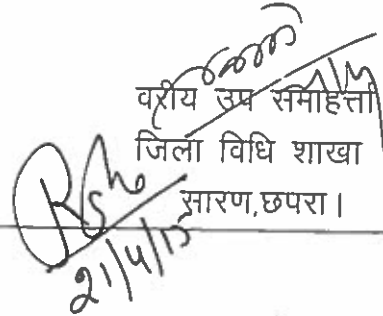 वरीय उप समाहर्त्ता
जिला विधि शाखा
सारण,छपरा।
21/4/15